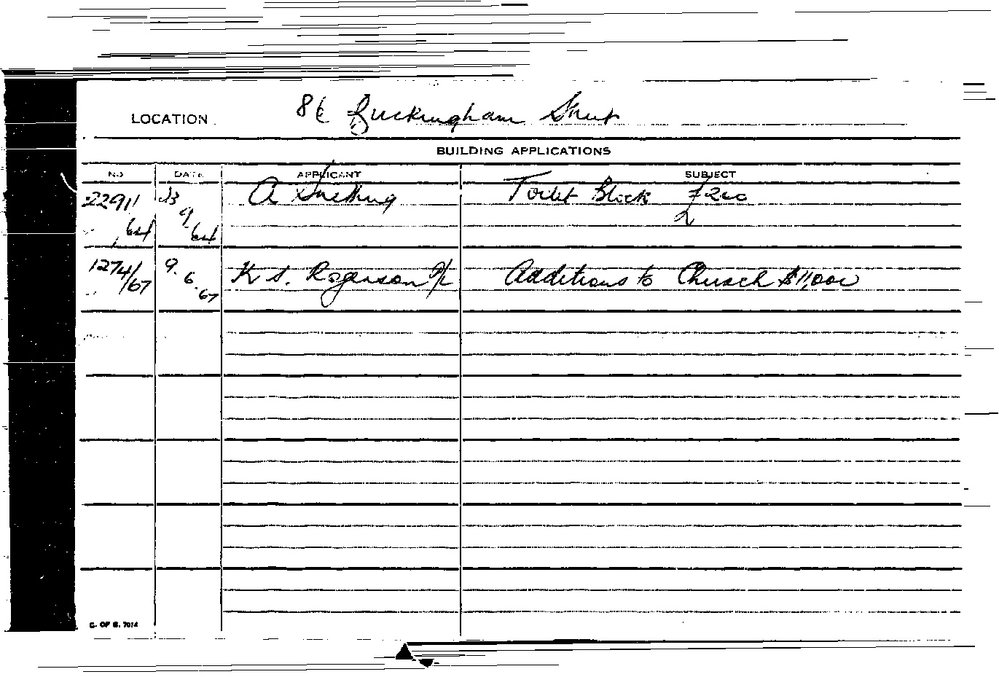 LOCATION 86 Buckingham Street
BUILDING APPLICATIONS
NO DATE APPLICANT SUBJECT
2291/ A Toilet Block £200
9
/64 64 2
1274/67 9.6.67 K S. Rogerson P/L Additions to Church $11,000
C. OF S. 7014